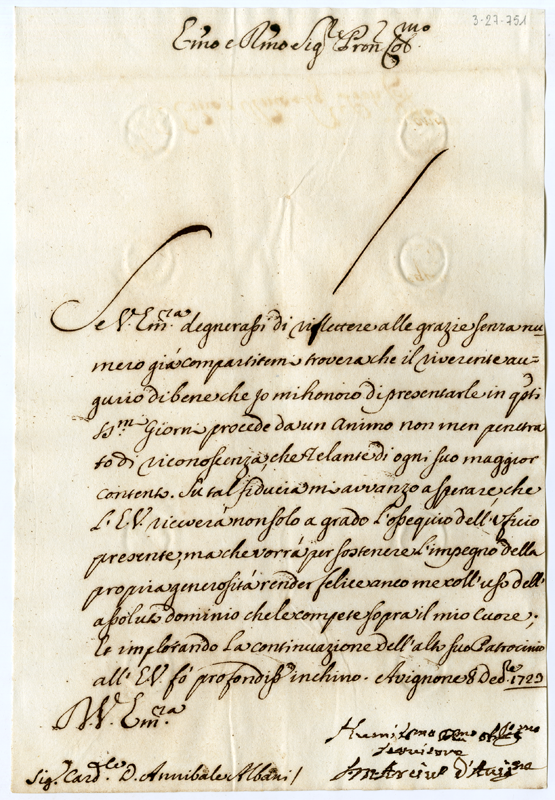 3-27-751
Emo e Rmo Sig.re Pron Col.mo
Se V. Em.cia degnerassi di riflettere alle grazie senza nu=
mero giá compartitemi troverá che il riverente au=
gurio di bene che Jo mi honoro di presentarle in q.sti
SS.mi Giorni procede da un Animo non men penetra
to di riconoscenza, che zelante di ogni suo maggior
contento. Su tal fiducia mi avvanzo a sperare che
L'E.V. riceverá non solo a grado l'ossequio dell'Ufficio
presente, ma che vorrá per sostenere l'impegno della
propria generositá render felice anco me coll'uso dell'
assoluto dominio che le compete sopra il mio Cuore;
Et implorando la continuazione dell'alto suo Patrocinio
all'E.V. fò profondiss.o inchino. Avignone 8 Dec.re 1729
D V. Em.cia
Humilmo Devmo
Servitore
d'Avig.ne
Sig.r Card.le D. Annibale Albani /